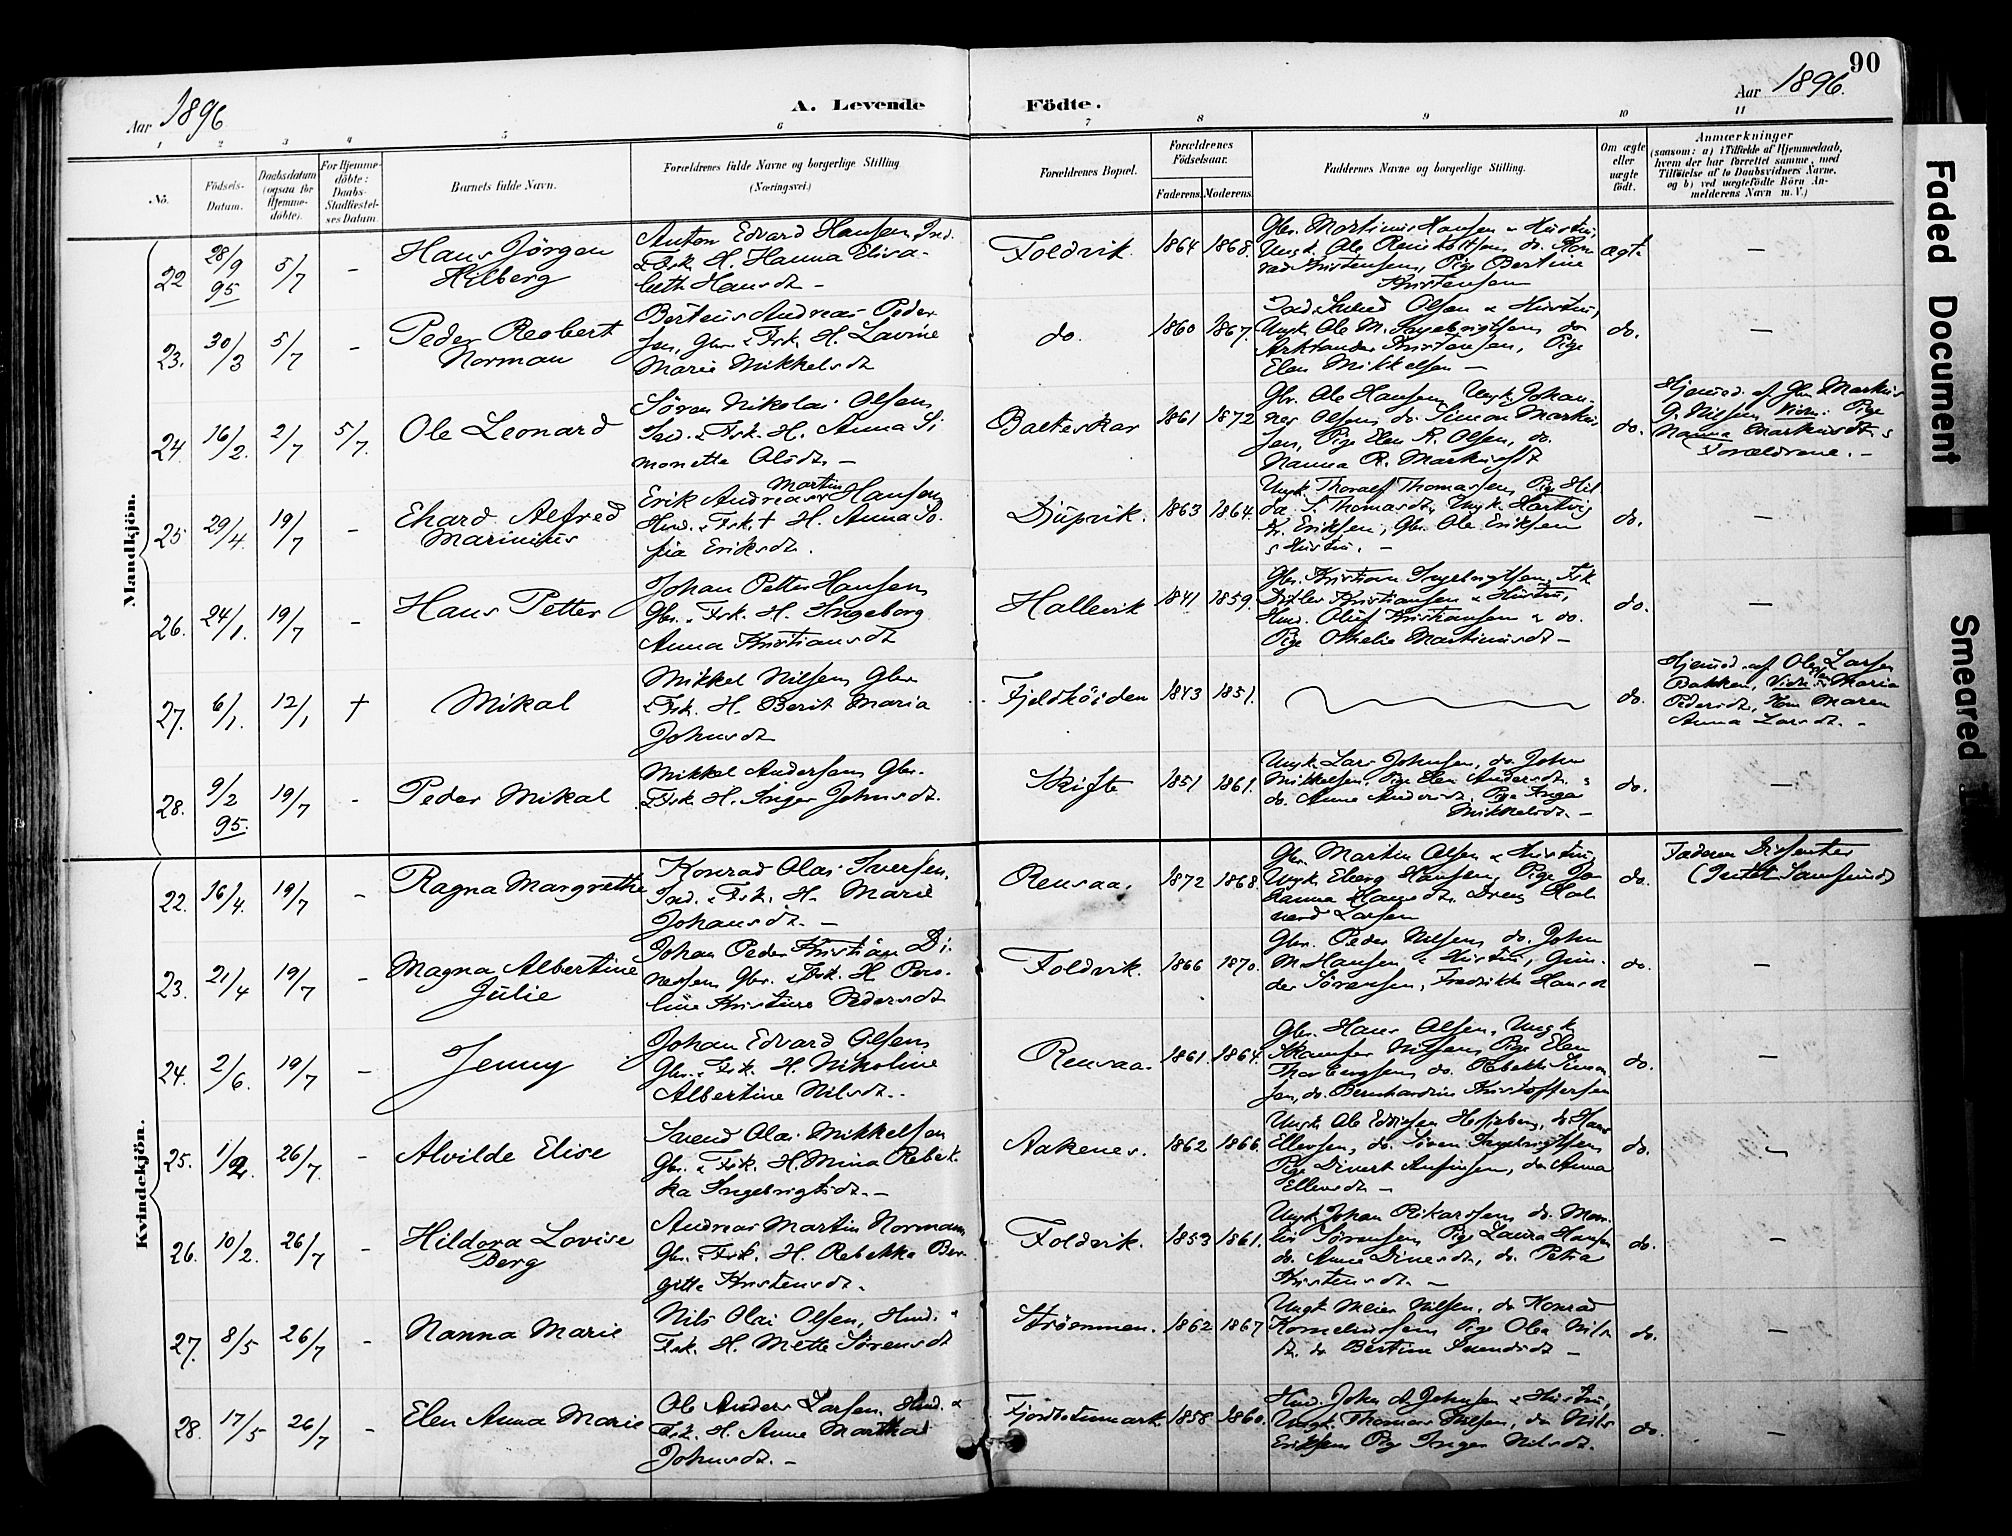 90
Aar 1896
A. Levende Födte.
Aar 1896.
1 2 3 4 5 6 7 8 9 10 11
No.
Födsels-Datum.
Daabsdatum (ogsaa for Hjemme-döbte).
For Hjemme-döbte: Daabs-Stadfæstel-ses Datum.
Barnets fulde Navn.
Forældrenes fulde Navne og borgerlige Stilling
(Næringsvei.)
Forældrenes Bopæl.
Forældrenes Födselsaar.
Faderens. Moderens.
Faddernes Navne og borgerlige Stilling.
Om ægte eller uægte födt.
Anmærkninger
(saasom: a) i Tilfælde af Hjemmedaab, hvem der har forrettet samme, med Tilföielse af to Daabsvidners Navne, og b) ved uægtefödte Börn An-melderens Navn m. V.)
Mandkjön.
22 28/9 95 5/7 - Hans Jörgen Hilberg
Anton Edvard Hansen, Ind. & Fsk. H. Hanna Elisa-beth Hansdt. -
Foldvik. 1864 1868.
Gbr. Martinus Hansen & Hustru, Ungk. Ole do. Kon-rad Kristensen, Pige Bertine Kristensen
ægt. -
23. 30/3 5/7 - Peder Reobert Norman
Berteus Andreas Peder-sen, Gbr. & Fsk. H. Lavine Marie Mikkelsdt
do. 1860 1867.
Olsen & Hustru, Ungk. Ole M. Ingebrigtsen, do Kristensen, Pige Elen Mikkelsen -
do. -
24. 16/2. 2/7 5/7. Ole Leonard
Sören Nikolai Olsen, Ind. & Fsk. H. Anna Si-monette Olsdt. -
Balteskar 1861 1872
Gbr. Ole Hansen, Ungk. Johan-nes Olsen, do. Simon Markus-sen, Pige Elen R. Olsen, do. Nanna R. Markusdt
do.
Hjemd. af Gbr. Markus G. Nilsen, Vidn: Pige Nanna Markusdt & Forældrene. -
25 29/4. 19/7 - Ehard Alfred Marinius
Erik Andreas Martin Hansen, Hmd. & Fsk. + H. Anna So-fia Eriksdt.
Djupvik. 1863 1864.
Ungk. Thoralf Thomassen, Pige Hil-da S. Thomasdt, Ungk. Hartvig Kr. Eriksen, Gbr. Ole Eriksen & Hustru. -
do. -
26. 24/1. 19/7 - Hans Petter
Johan Petter Hansen, Gbr. & Fsk. H. Ingeborg Anna Kristiansdt
Hallevik 1841 1859.
Gbr. Kristian Ingebrigtsen, Fsk. Ditlev Kristiansen & Hustru, Hmd. Oluf Kristiansen & do. Pige Othelie Martinusdt -
do. -
27. 6/1. 12/1 + Mikal
Mikkel Nilsen, Gbr. & Fsk. H. Berit Maria Johnsdt
Fjeldhöiden 1843 1851.
do.
Hjemd. af Ole Larsen Bakken, Vidn: Maria Pedersdt, Kone Maren Anna Larsdt. -
28. 9/2 95. 19/7 - Peder Mikal
Mikkel Andersen, Gbr. & Fsk. H. Inger Johnsdt.
Skifte 1851 1861.
Ungk. Lars Johnsen, do. John Mikkelsen, Pige Elen Andersdt. do. Anne Andersdt, Pige Inga Mikkelsdt. -
do. -
Kvindekjön.
22. 16/4. 19/7 - Ragna Margrethe
Konrad Olai Iversen, Ind. & Fsk. H. Marie Johansdt. -
Rensaa. 1872 1868.
Gbr. Martin Olsen & Hustru, Ungk. Eberg Hansen, Pige Jo-hanna Hansdt. Dreng Larsen
do.
Faderen Dissenter
23. 21/4 19/7 - Magna Albertine Julie
Johan Peder Kristian Di-nessen, Gbr. & Fsk. H. Pero-line Kristine Pedersdt
Foldvik. 1866 1870.
Gbr. Peder Nilsen, do. John M. Hansen & Hustru, Gun-der Sörensen, Fredrikke Hansdt
do. -
24. 2/6. 19/7 - Jenny
Johan Edvard Olsen, Gbr. & Fsk. H. Nikoline Albertine Nilsdt.
Rensaa. 1861. 1864.
Gbr. Hans Olsen, Ungk. Nilsen, Pige Elen Thorbergsen, do. Rebekka Simon-sen, do. Bernhardine Kristoffersen
do. -
25. 1/2. 26/7. - Alvilde Elise
Svend Olai Mikkelsen Gbr. & Fsk. H. Mina Rebek-ka Ingebrigtsdt. -
Aakenes. 1862 1866.
Ungk. Ole Edvigsen, do. Hans Ellevsen, do. Sören Ingebrigtsen Pige Divert Anfinsen, do Anna Ellevsdt -
do. -
26. 10/2. 26/7 - Hildora Lovise Berg
Andreas Martin Normann, Gbr. & Fsk. H. Rebekka Ber-gitte Kristensdt.
Foldvik. 1853 1861.
Ungk. Johan Rikarssen, do. Mar-tin Sörensen, Pige Laura Hansen do. Anne Dinesdt, do. Petra Kristensdt. -
do. -
27. 8/5 26/7 - Nanna Marie
Nils Olai Olsen, Hmd. & Fsk. H. Mette Sörensdt
Strömmen. 1862 1867
Ungk. Meier Nilsen, do Konrad Korneliussen Pige Olea Nils-dt. do Bertine Svendsdt -
do. -
28. 17/5 26/7 - Elen Anna Marie
Ole Anders Larsen, Hmd. & Fsk. H. Anne Martha Johnsdt. -
Fjordbotnmark. 1858 1860.
Hmd. John A. Johnsen & Hustru, Ungk. Thomas Nilsen, do Nils Eriksen Pige Inger Nilsdt.
do. -
Faded Document
Smeared